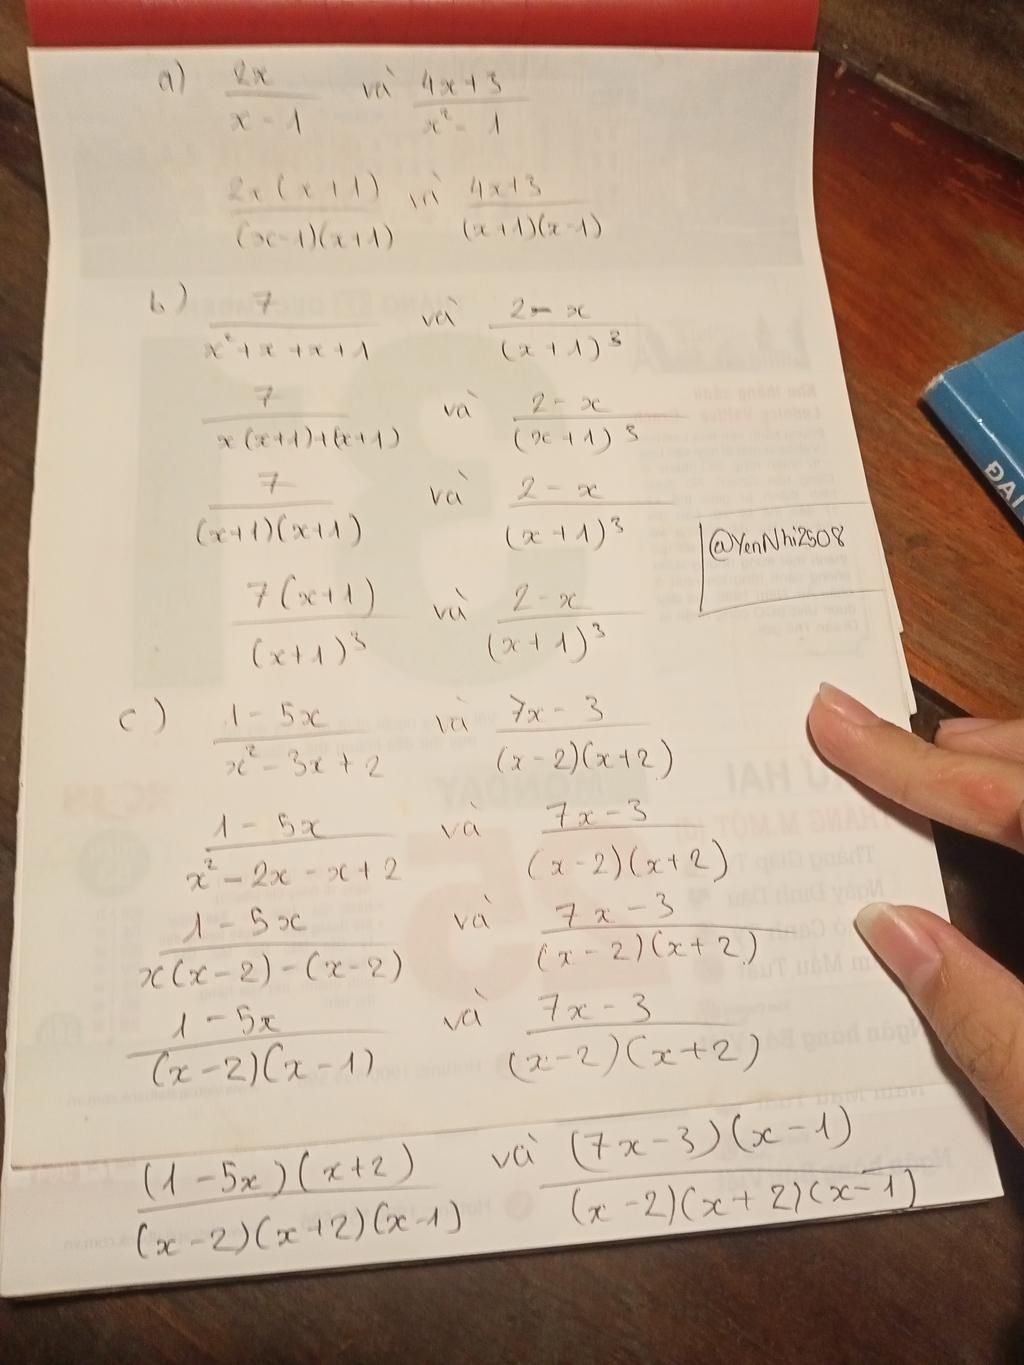 a) 2x/(x - 1) và (4x+3)/(x² - 1)
2x(x+1)/((x-1)(x+1)) và (4x+3)/((x+1)(x-1))
b) 7/(x²+x+x+1) và (2-x)/(x+1)³
7/(x(x+1)+(x+1)) và (2-x)/(x+1)³
7/((x+1)(x+1)) và (2-x)/(x+1)³
@YenNhi2508
7(x+1)/(x+1)³ và (2-x)/(x+1)³
c) (1-5x)/(x²-3x+2) và (7x-3)/((x-2)(x+2))
(1-5x)/(x²-2x-x+2) và (7x-3)/((x-2)(x+2))
(1-5x)/(x(x-2)-(x-2)) và (7x-3)/((x-2)(x+2))
(1-5x)/((x-2)(x-1)) và (7x-3)/((x-2)(x+2))
(1-5x)(x+2)/((x-2)(x+2)(x-1)) và (7x-3)(x-1)/((x-2)(x+2)(x-1))
ĐẠI